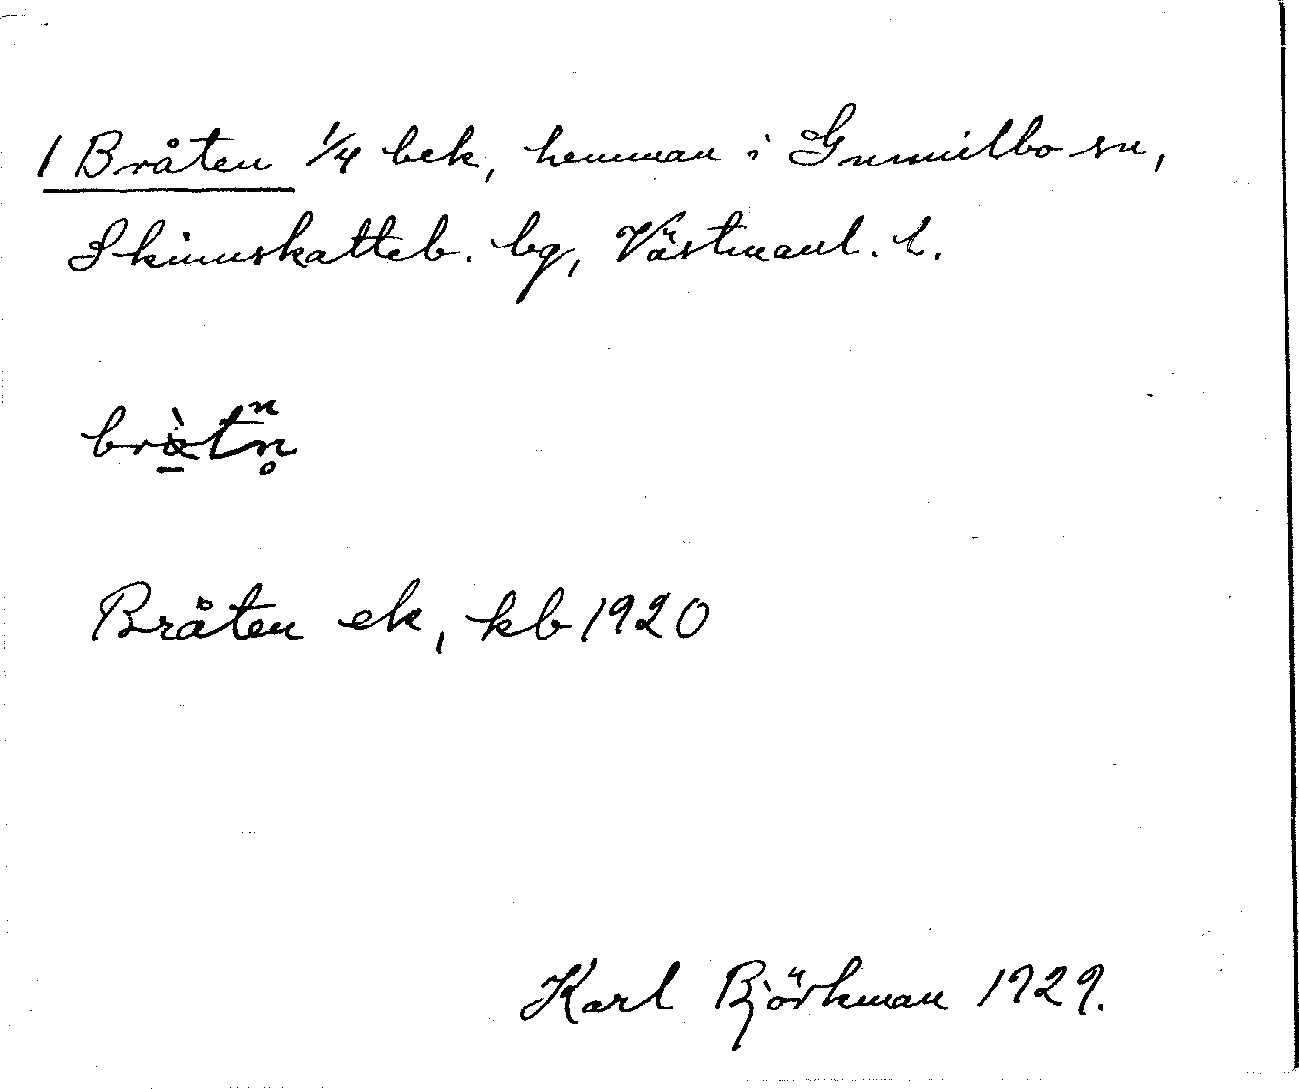 1 Bråten 1/4 bek, hemman i Gunnilbo sn,
Skinnskatteb. bg, Västmanl. l.
Bråten ek, kb 1920
Karl Björkman 1929.